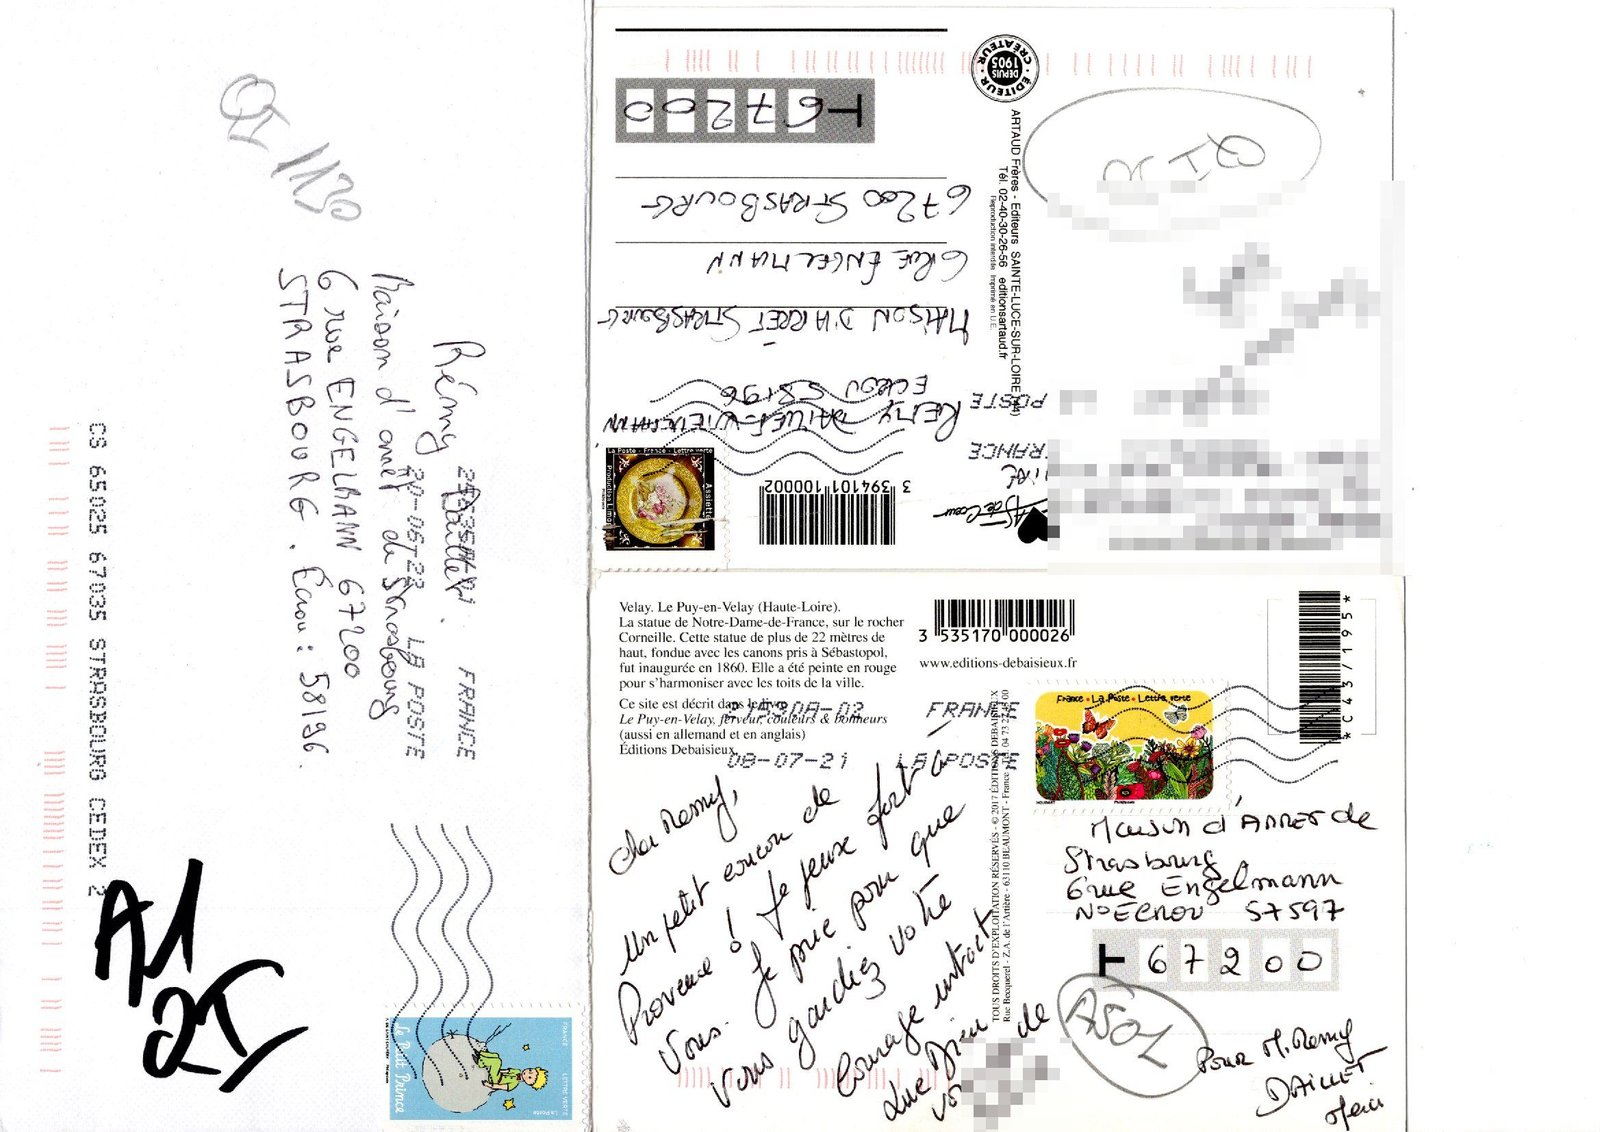 QI 1130
Rémy Daillet.
Maison d'arrêt de Strasbourg
6 rue ENGELMANN 67200
STRASBOURG. Écrou : 58196
20-06-22 LA POSTE
FRANCE
CS 65025 67035 STRASBOURG CEDEX 2
A1
QI
FRANCE
LETTRE VERTE
Le Petit Prince
La Poste
ÉDITEUR · CRÉATEUR
DEPUIS 1905
ARTAUD Frères - Editeurs SAINTE-LUCE-SUR-LOIRE (44)
Tél. 02-40-30-26-56 editionsartaud.fr
Reproduction interdite Imprimé en U.E.
QI
As de Cœur
3 394101 100002
La Poste - France - Lettre verte
Assiette
FRANCE
POSTE
REMY DAILLET-WIEDEMANN
ECROU 58196
MAISON D'ARRÊT STRASBOURG
6 RUE ENGELMANN
67200 STRASBOURG
T 67200
Velay. Le Puy-en-Velay (Haute-Loire).
La statue de Notre-Dame-de-France, sur le rocher
Corneille. Cette statue de plus de 22 mètres de
haut, fondue avec les canons pris à Sébastopol,
fut inaugurée en 1860. Elle a été peinte en rouge
pour s'harmoniser avec les toits de la ville.
Ce site est décrit dans le livre
Le Puy-en-Velay, ferveur, couleurs & bonheurs
(aussi en allemand et en anglais)
Éditions Debaisieux.
3 535170 000026
www.editions-debaisieux.fr
FRANCE
08-07-21 LA POSTE
TOUS DROITS D'EXPLOITATION RÉSERVÉS - © 2017 ÉDITIONS DEBAISIEUX
Rue Becquerel - Z.A. de l'Artière - 63110 BEAUMONT - France
France - La Poste - Lettre verte
*C43/195*
Cher Remy,
Un petit coucou de
Provence ! Je pense fort à
vous. Je prie pour que
vous gardiez votre
courage intact
Que Dieu
Maison d'ARRET de
Strasbourg
6 rue Engelmann
N° ECROU 57597
T 67200
ASO1
Pour M. Remy
DAILLET
Merci